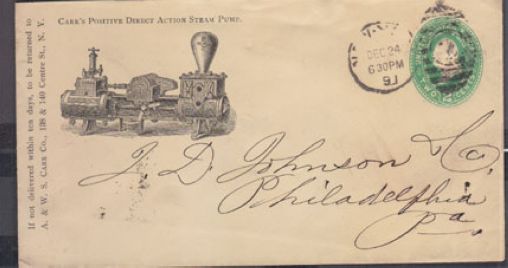 If not delivered within ten days, to be returned to
A. & W. S. Carr Co., 138 & 140 Centre St., N. Y.
Carr's Positive Direct Action Steam Pump.
DEC 24
6 30 PM
91
TWO CENTS
J. D. Johnson & Co.
Philadelphia
Pa.